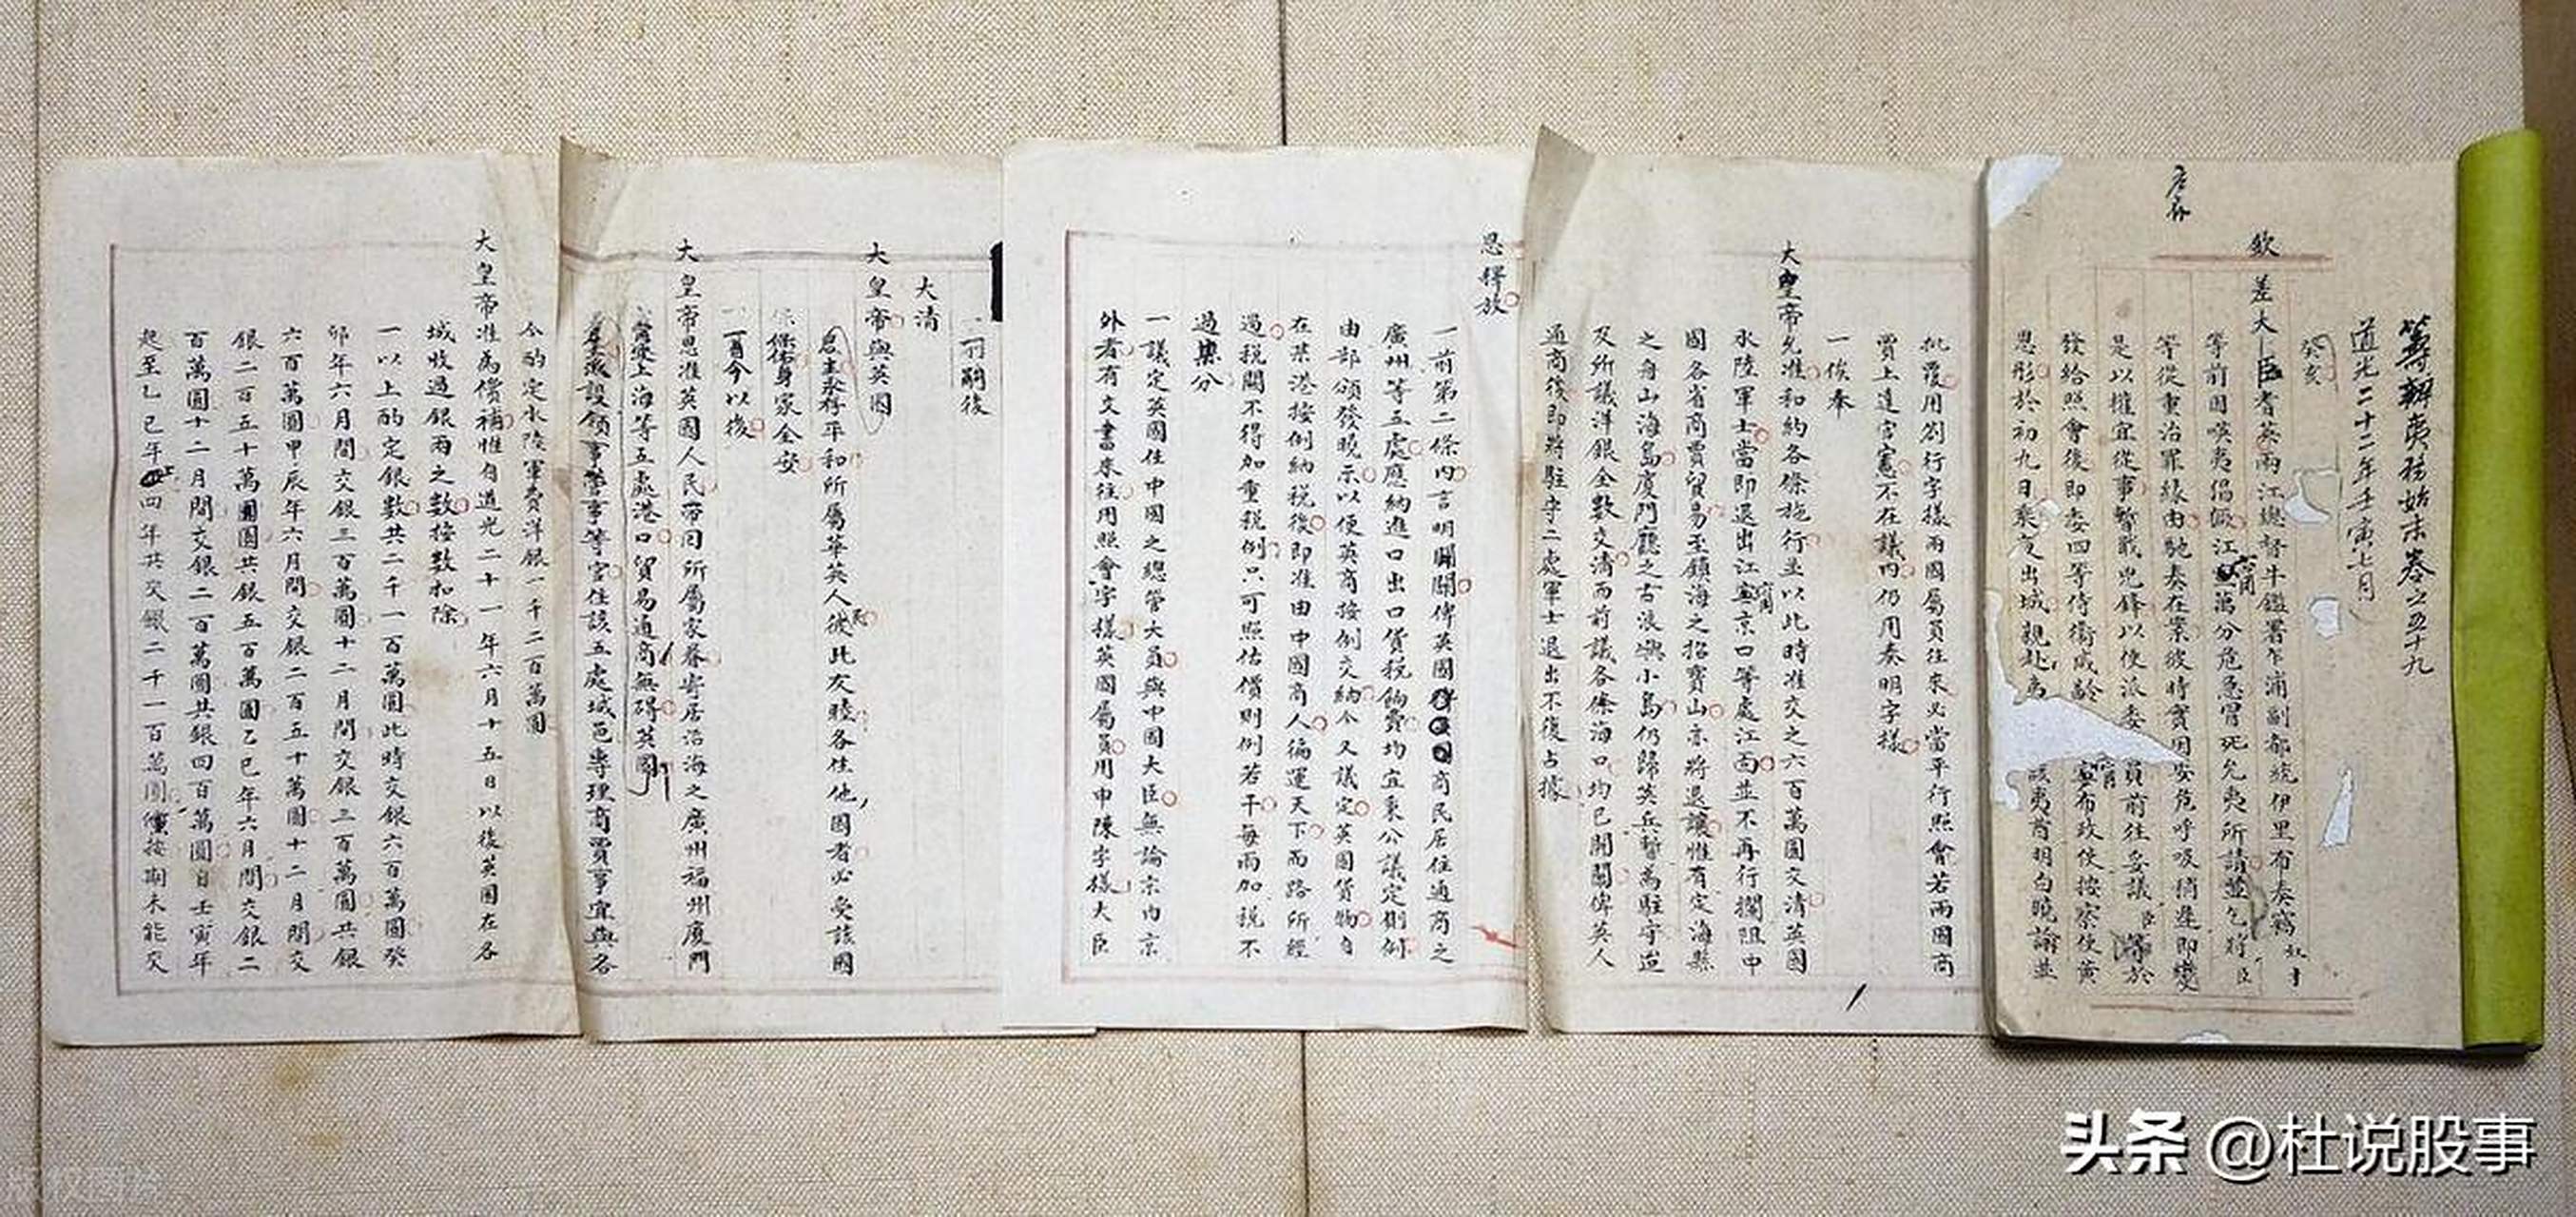 籌辦夷務始末卷之五十九
道光二十二年壬寅七月
癸亥
欽差大臣耆英兩江總督牛鑑署乍浦副都統伊里布奏竊奴才
等前因暎夷猖獗江甯萬分危急冒死允夷所請並乞將臣
等從重治罪緣由馳奏在案彼時實因安危呼吸稍遲即變
是以權宜從事暫戢兇鋒以便派委員前往妥議臣等於
發給照會後即委四等侍衛咸齡甯布政使按察使黃
恩彤於初九日乘夜出城親赴該夷酋明白曉諭並
批覆用劄行字樣兩國屬員往來必當平行照會若兩國商
賈上達官憲不在議內仍用奏明字樣
一俟奉
大皇帝允准和約各條施行並以此時准交之六百萬圓交清英國
水陸軍士當即退出江甯京口等處江面並不再行攔阻中
國各省商賈貿易至鎮海之招寶山亦將退讓惟有定海縣
之舟山海島廈門廳之古浪嶼小島仍歸英兵暫為駐守迨
及所議洋銀全數交清而前議各條海口均已開闢俾英人
通商後即將駐守二處軍士退出不復占據
恩釋放
一前第二條內言明開關俾英國商民居住通商之
廣州等五處應納進口出口貨稅餉費均宜秉公議定則例
由部頒發曉示以便英商按例交納今又議定英國貨物自
在某港按例納稅後即准由中國商人徧運天下而路所經
過稅關不得加重稅例只可照估價則例若干每兩加稅不
過某分
一議定英國住中國之總管大員與中國大臣無論京內京
外者有文書來往用照會字樣英國屬員用申陳字樣大臣
一嗣後
大清
大皇帝與英國
君主永存平和所屬華英人民彼此友睦各住他國者必受該國
保佑身家全安
一自今以後
大皇帝恩准英國人民帶同所屬家眷寄居沿海之廣州福州廈門
甯波上海等五處港口貿易通商無礙英國
君主派設領事管事等官住該五處城邑專理商賈事宜與各
今酌定水陸軍費洋銀一千二百萬圓
大皇帝准為償補惟自道光二十一年六月十五日以後英國在各
城收過銀兩之數按數扣除
一以上酌定銀數共二千一百萬圓此時交銀六百萬圓癸
卯年六月間交銀三百萬圓十二月間交銀三百萬圓共銀
六百萬圓甲辰年六月間交銀二百五十萬圓十二月間交
銀二百五十萬圓共銀五百萬圓乙巳年六月間交銀二
百萬圓十二月間交銀二百萬圓共銀四百萬圓自壬寅年
起至乙巳年止四年共交銀二千一百萬圓儻按期未能交
头条 @杜说股事